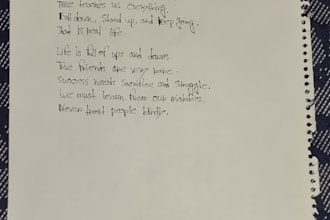 Time teaches us everything.
Fall down, Stand up, and keep going.
That is real life.
Life is full of ups and downs.
True friends are very rare.
Success needs sacrifice and struggle.
We must learn from our mistakes.
Never trust people blindly.